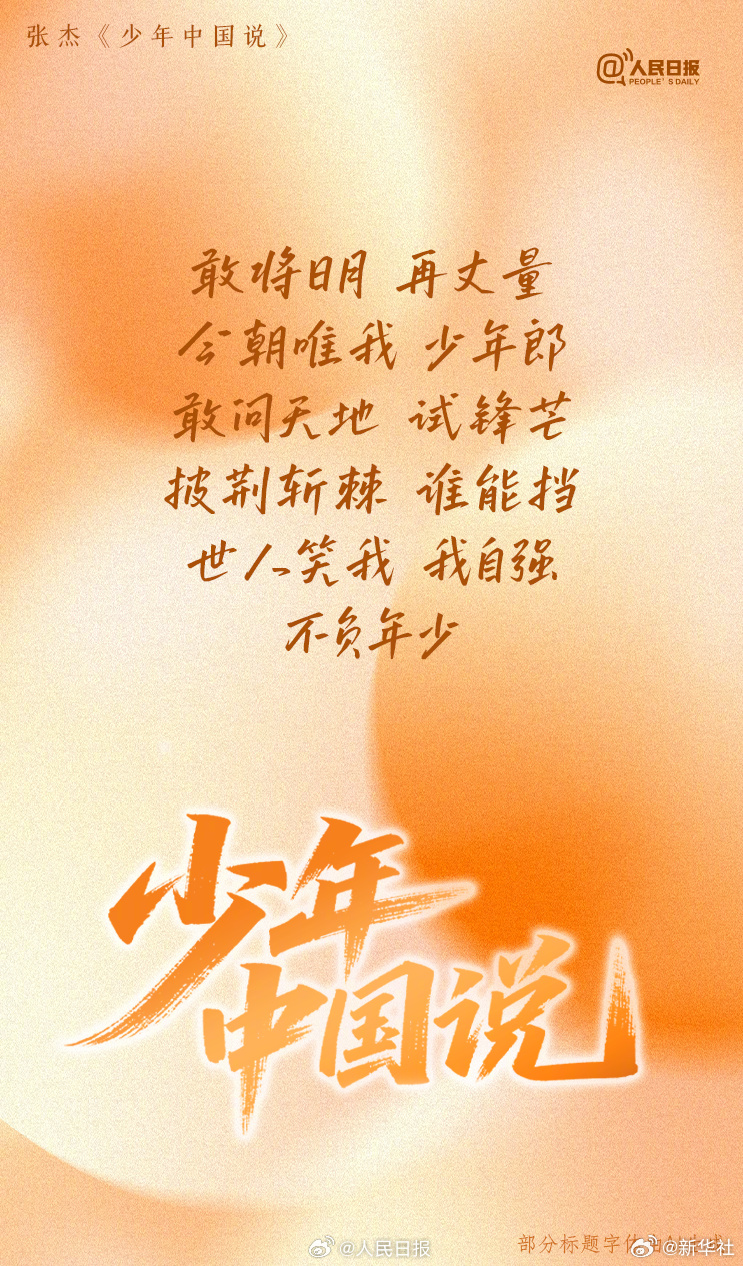 张杰《少年中国说》
@人民日报
PEOPLE'S DAILY
敢将日月 再丈量
今朝唯我 少年郎
敢问天地 试锋芒
披荆斩棘 谁能挡
世人笑我 我自强
不负年少
少年
中国说
@人民日报
部分标题字体
@新华社